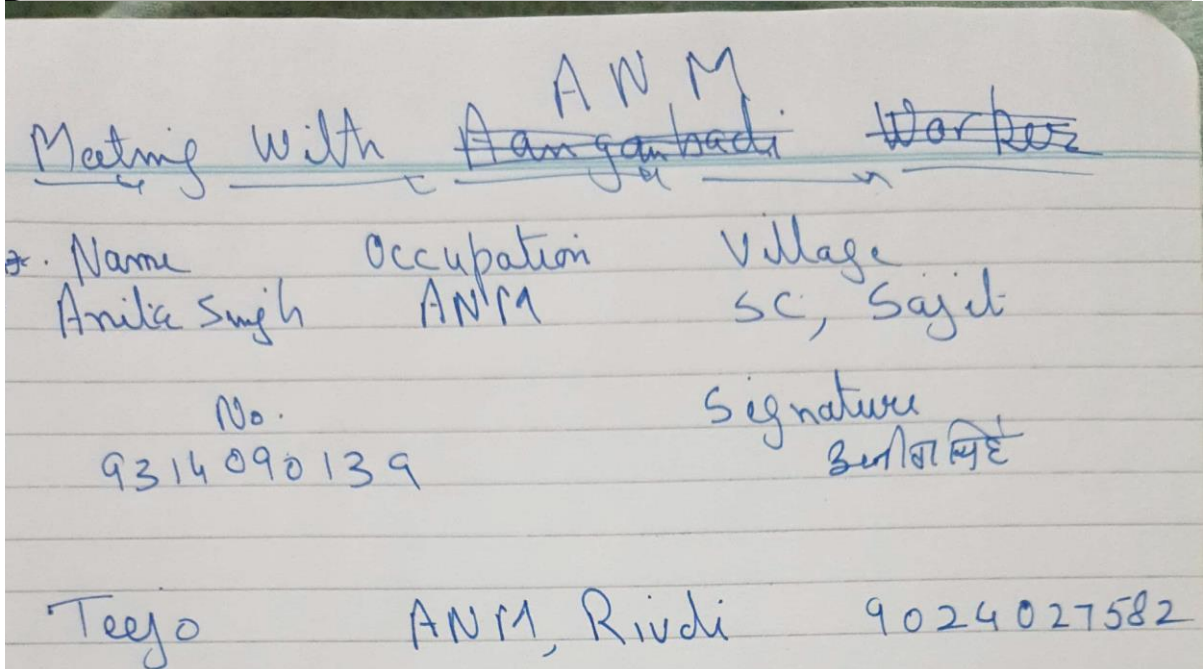 ANM
Meeting with ~~Aanganbadi Worker~~
Name Occupation Village
Anita Singh ANM SC, Sajit
No. Signature
9314090139 अनीता सिंह
Teejo ANM, Rivdi 9024027582